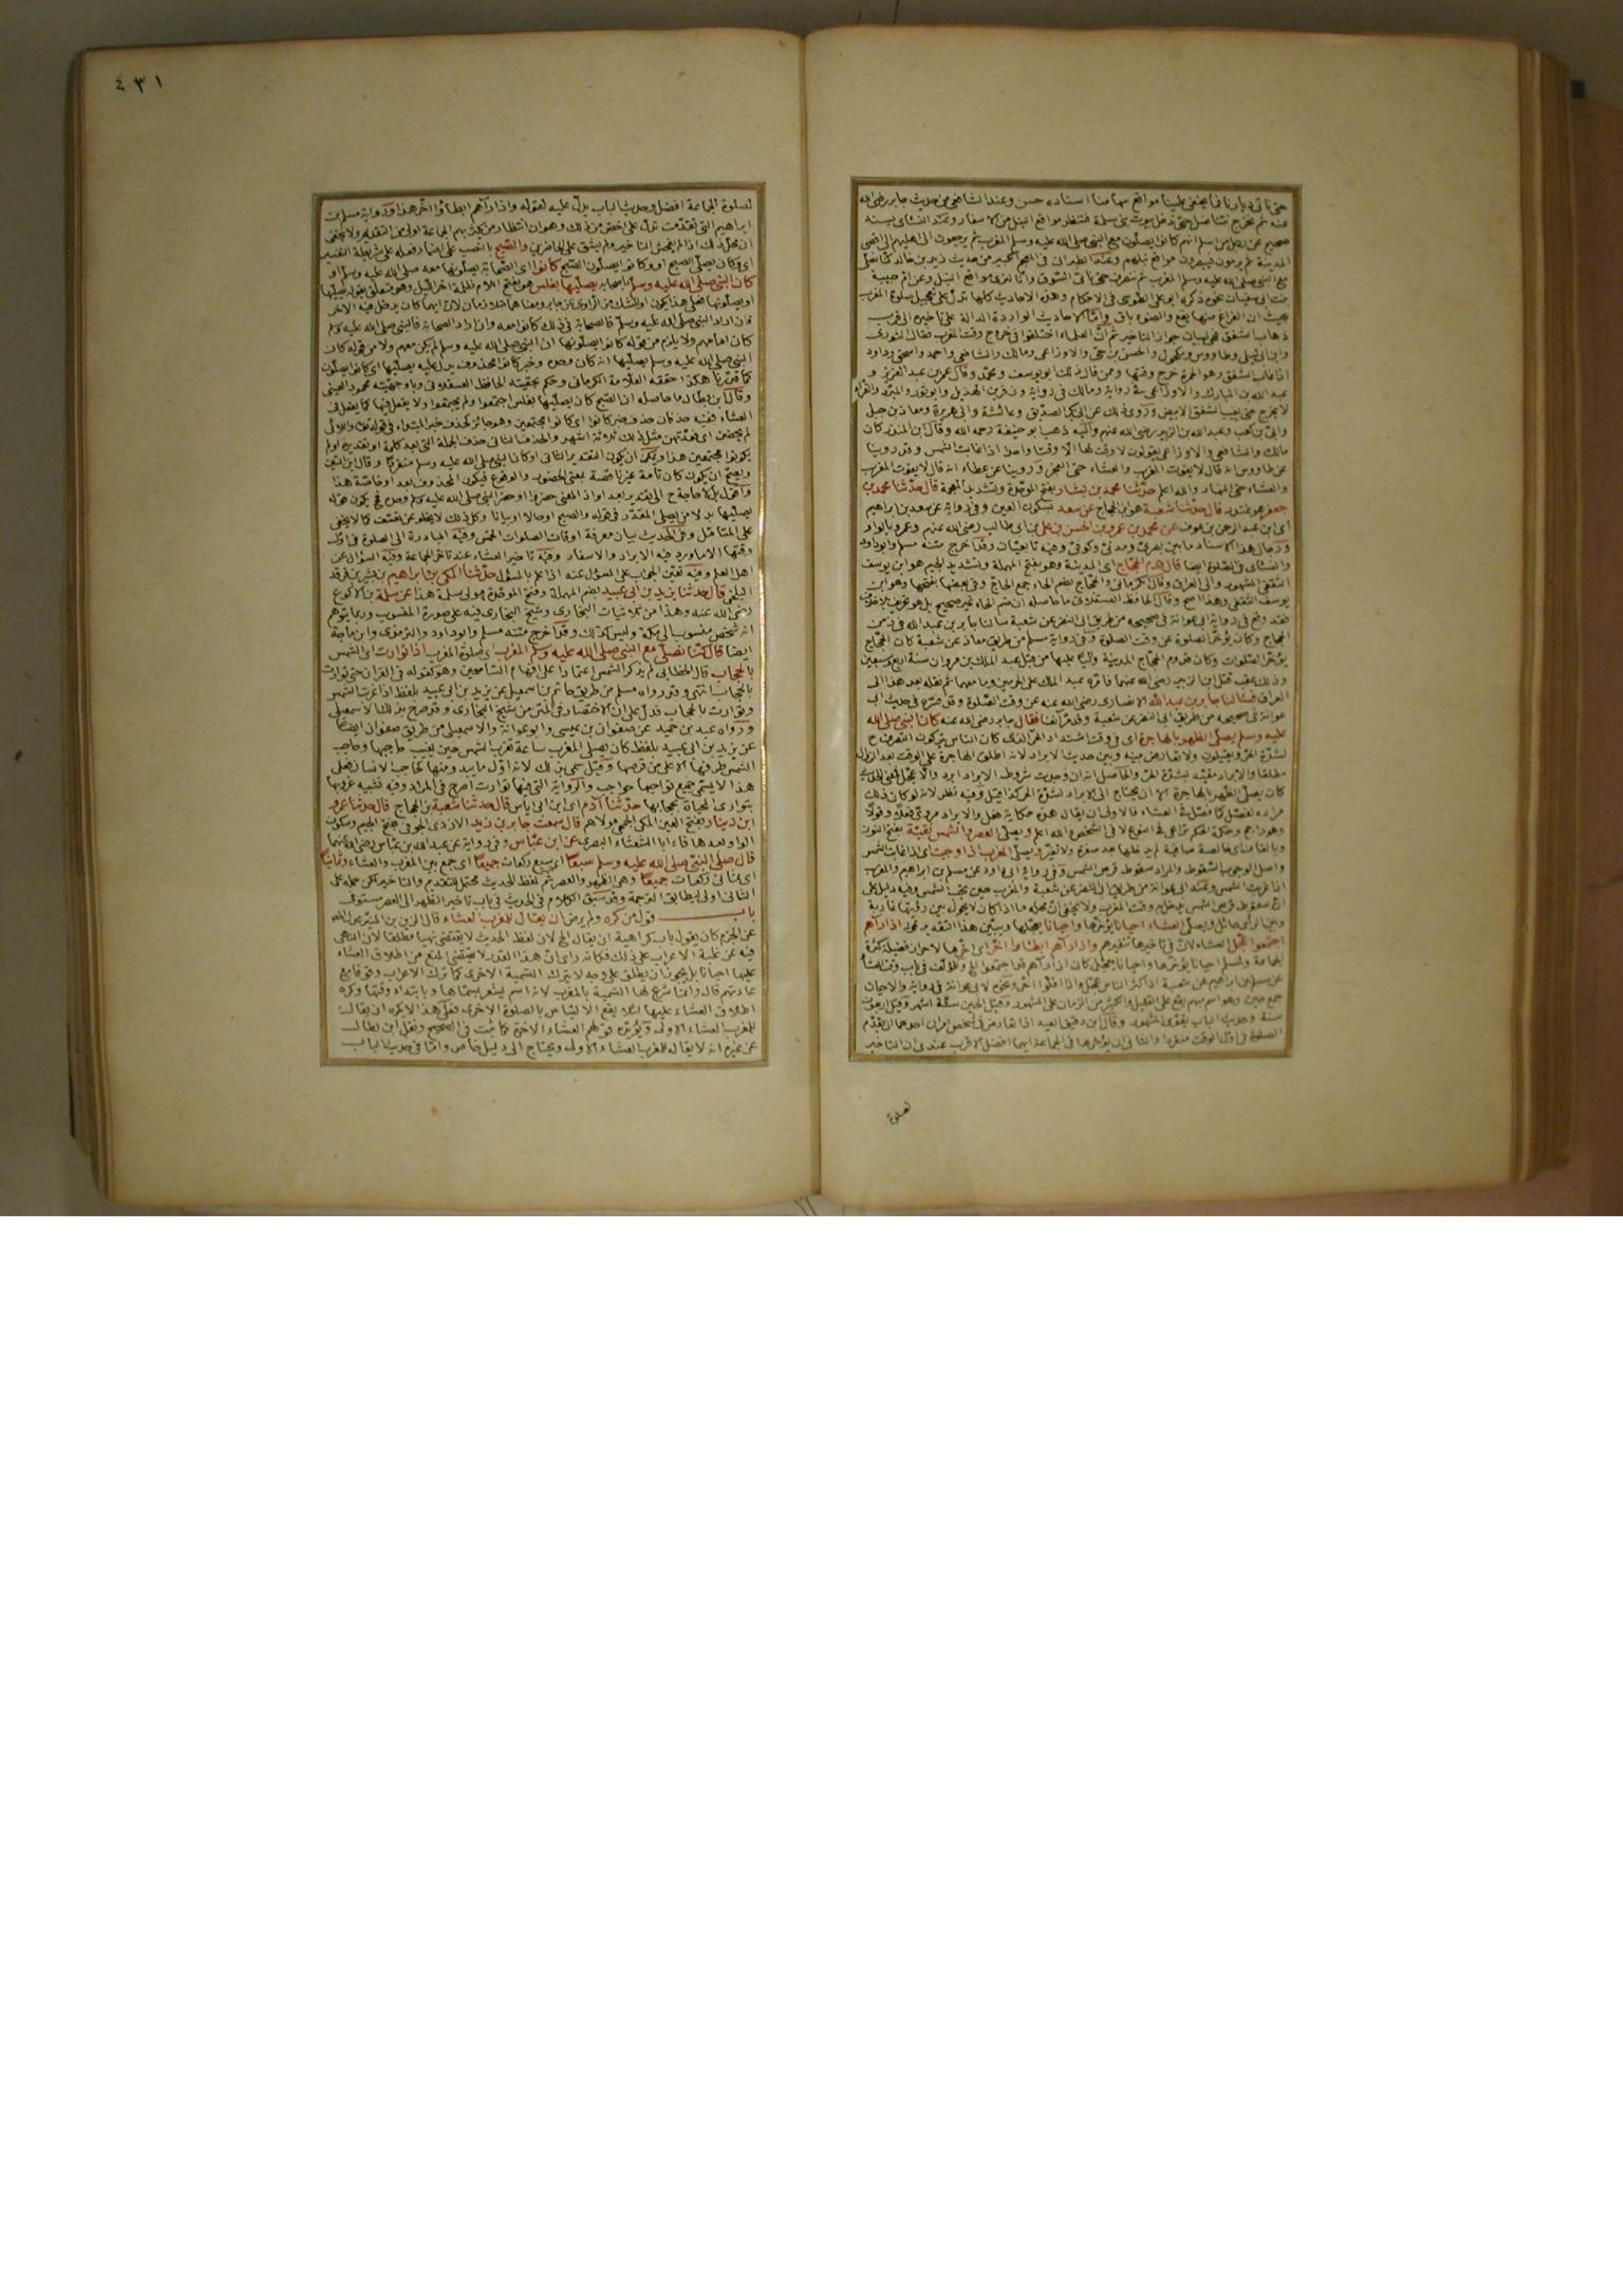 حتى نأتي ديارنا فما يخفى علينا مواقع سهامنا اسناده حسن وعند الشافعي من حديث جابر رضي الله
عنه ثم نخرج نتناضل حتى ندخل بيوت بنى سلمة فننظر مواقع النبل من الاسفار وعند النسائى بسند
صحيح عن رجل من اسلم انهم كانوا يصلون مع النبي صلى الله عليه وسلم المغرب ثم يرجعون الى اهليهم الى اقصى
المدينة ثم يرمون فيبصرون مواقع نبلهم وعند الطبرانى فى المعجم الكبير من حديث زيد بن خالد كنا نصلى
مع النبي صلى الله عليه وسلم المغرب ثم ننصرف حتى نأتى السوق وانا لنرى مواضع النبل وعن ام حبيبة
بنت ابى سفيان نحوه ذكره ابو على الطوسى فى الاحكام وهذه الاحاديث كلها تدل على تعجيل صلوة المغرب
بحيث ان الفراغ منها يقع والضوء باق واما الاحاديث الواردة الدالة على تأخيره الى قرب
ذهاب الشفق فهى لبيان جواز التأخير ثم ان العلماء اختلفوا فى خروج وقت المغرب فقال الثورى
وابن ابى ليلى وطاووس ومكحول والحسن بن حى والاوزاعى ومالك والشافعى واحمد واسحق وداود
اذا غاب الشفق وهو الحمرة خرج وقتها وممن قال ذلك ابو يوسف ومحمد وقال عمر بن عبد العزيز و
عبد الله بن المبارك والاوزاعى فى رواية ومالك فى رواية وزفر بن الهذيل وابو ثور والمبرد والفراء
لا يخرج حتى يغيب الشفق الابيض وروى ذلك عن ابى بكر الصديق وعائشة وابى هريرة ومعاذ بن جبل
وابى بن كعب وعبد الله بن الزبير رضى الله عنهم واليه ذهب ابو حنيفة رحمه الله وقال ابن المنذر كان
مالك والشافعى والاوزاعى يقولون لا وقت لها الا وقتا واحدا اذا غابت الشمس وقد روينا
عن طاووس انه قال لا يفوت المغرب والعشاء حتى الفجر وروينا عن عطاء انه قال لا يفوت المغرب
والعشاء حتى النهار والله اعلم حدثنا محمد بن بشار بفتح الموحدة وتشديد المعجمة قال حدثنا محمد بن
جعفر هو غندر قال حدثنا شعبة هو ابن الحجاج عن سعد بسكون العين وفى رواية عن سعد بن ابراهيم
اى ابن عبد الرحمن بن عوف عن محمد بن عمرو بن الحسن بن على بن ابى طالب رضى الله عنهم وعمرو بالواو
ورجال هذا الاسناد ما بين بصرى ومدنى وكوفى وفيه تابعيان وقد اخرج متنه مسلم وابو داود
والنسائى فى الصلوة ايضا قال قدم الحجاج اى المدينة وهو بفتح المهملة وتشديد الجيم هو ابن يوسف
الثقفى المشهور والى العراق وقال الكرمانى والحجاج بضم الحاء جمع الحاج وفى بعضها بفتحها وهو ابن
يوسف الثقفى وهذا اصح وقال الحافظ العسقلانى ما حاصله ان ضم الحاء غير صحيح بل هو تحريف بلا خلاف
فقد وقع فى رواية ابى عوانة فى صحيحه من طريق ابى النضر عن شعبة سألنا جابر بن عبد الله فى زمن
الحجاج وكان يؤخر الصلوة عن وقت الصلوة وفى رواية مسلم من طريق معاذ عن شعبة كان الحجاج
يؤخر الصلوات وكان قدوم الحجاج المدينة واليا عليها من قبل عبد الملك بن مروان سنة اربع وسبعين
وذلك عقب قتل ابن الزبير رضى الله عنهما فامره عبد الملك على الحرمين وما معهما ثم نقله بعد هذا الى
العراق فسألنا جابر بن عبد الله الانصارى رضى الله عنه عن وقت الصلوة وقد فسره فى حديث ابى
عوانة فى صحيحه من طريق ابى النضر عن شعبة وقد مر آنفا فقال جابر رضى الله عنه كان النبى صلى الله
عليه وسلم يصلى الظهر بالهاجرة اى فى وقت اشتداد الحر الذى كان الناس يتركون التصرف ح
لشدة الحر ويقيلون ولا تعارض بينه وبين حديث الابراد لانه اطلق الهاجرة على الوقت بعد الزوال
مطلقا والابراد مقيد بشدة الحر والحاصل انه ان وجدت شروط الابراد ابرد والا عجل
كان يصلى الظهر بالهاجرة الا ان يحتاج الى الابراد لشدة الحر كذا قيل وفيه نظر لانه لو كان ذلك
مراده لفصل كما فصل فى العشاء فالاولى ان يقال هذه حكاية فعل والابراد مروى فعلا وقولا
والعصر والشمس نقية بفتح النون
وبالقاف اى خالصة صافية لم يدخلها بعد صفرة ولا تغير ويصلى المغرب اذا وجبت اى اذا غابت الشمس
واصل الوجوب السقوط والمراد سقوط قرص الشمس وفى رواية ابى داود عن مسلم بن ابراهيم والمغرب
اذا غربت الشمس وعند ابى عوانة من طريق ابى النضر عن شعبة والمغرب حين تجب الشمس وفيه دليل على
ان سقوط قرص الشمس يدخل به وقت المغرب ولا يخفى ان محله ما اذا كان لا يحول بين رؤيتها غاربة
وبين الرائى حائل ويصلى العشاء احيانا يؤخرها واحيانا يعجلها ويبين هذا التقدير قوله اذا رآهم
اجتمعوا عجل العشاء لان فى تأخيرها تنفيرهم واذا رآهم ابطاوا اخر اى اخرها لاحراز فضيلة كثرة
الجماعة ولمسلم احيانا يؤخرها واحيانا يعجل كان اذا رآهم قد اجتمعوا الخ وللمؤلف فى باب وقت العشاء
عن مسلم بن ابراهيم عن شعبة اذا كثر الناس عجل واذا قلوا اخر ونحوه لابى عوانة فى رواية والاحيان
جمع حين وهو اسم مبهم يقع على القليل والكثير من الزمان على المشهور وقيل الحين ستة اشهر وقيل اربعون
سنة وحديث الباب يقوى المشهور وقال ابن دقيق العيد اذا تعارض فى شخص امران احدهما ان يقدم
الصلوة فى اول الوقت منفردا والثانى ان يؤخرها فى الجماعة ايهما افضل الاقرب عندى ان التأخير
لصلوة
٤٣١
لصلوة الجماعة افضل وحديث الباب يدل عليه لقوله واذا رآهم ابطاؤا اخر هذا ورواية مسلم بن
ابراهيم التى تقدمت تدل على اخص من ذلك وهو ان انتظار من تكثر بهم الجماعة اولى من التقديم ولا يخفى
ان محل ذلك اذا لم يفحش التأخير ولم يشق على الحاضرين والصبح بالنصب على انها مفعوله على شريطة التفسير
اى وكان يصلى الصبح او وكانوا يصلون الصبح كانوا اى الصحابة يصلونها معه صلى الله عليه وسلم او
كان النبى صلى الله عليه وسلم باصحابه يصليها بغلس هو بفتح اللام ظلمة آخر الليل وهو متعلق بقوله يصليها
او يصلونها فعلى هذا يكون او للشك من الراوى عن جابر ومعناهما متلازمان لان ايهما كان يدخل فيه الآخر
فان اراد النبى صلى الله عليه وسلم فالصحابة فى ذلك كانوا معه وان اراد الصحابة فالنبى صلى الله عليه وسلم
كان امامهم ولا يلزم من قوله كانوا يصلونها ان النبى صلى الله عليه وسلم لم يكن معهم ولا من قوله كان
النبى صلى الله عليه وسلم يصليها انه كان وحده وخبر كانوا محذوف يدل عليه يصليها اى كانوا يصلون
كما قررنا هكذا حققه العلامة الكرمانى وحكم بحقيته الحافظ العسقلانى وباوجهيته محمود العينى
وقال ابن بطال ما حاصله ان الصبح كان يصليها بغلس اجتمعوا ولم يجتمعوا ولا يفعل فيها كما يفعل فى
العشاء ففيه حذفان حذف خبر كانوا اى كانوا مجتمعين وهو جائز كحذف خبر المبتداء فى قوله تعالى واللائى
لم يحضن اى فعدتهن مثل ذلك ثلاثة اشهر والحذف الثانى حذف الجملة التى بعد كلمة او تقديره او لم
يكونوا مجتمعين هذا ويمكن ان يكون التقدير الثانى او كان النبى صلى الله عليه وسلم منفردا وقال ابن التين
ويصح ان يكون كان تامة غير ناقصة بمعنى الحضور والوقوع فيكون المحذوف بعد او خاصة هذا
يصليها بدلا من يصلى المقدر فى قوله والصبح او حالا او بيانا وكل ذلك لا يخلو عن تعسف كما لا يخفى
على المتأمل وفى الحديث بيان معرفة اوقات الصلوات الخمس وفيه المبادرة الى الصلوة فى اول
وقتها الا ما ورد فيه الابراد والاسفار وفيه تأخير العشاء عند تأخر الجماعة وفيه السؤال عن
اهل العلم وفيه تعين الجواب على المسؤل عنه اذا علم بالمسؤل حدثنا المكى بن ابراهيم بن بشير بن فرقد
البلخى قال حدثنا يزيد بن ابى عبيد بضم المهملة وفتح الموحدة مولى سلمة هذا عن سلمة بن الاكوع
رضى الله عنه وهذا من ثلاثيات البخارى وشيخ البخارى فيه على صورة المنسوب وربما يتوهم
انه شخص منسوب الى مكة وليس كذلك وقد اخرج متنه مسلم وابو داود والترمذى وابن ماجة
ايضا قال كنا نصلى مع النبى صلى الله عليه وسلم المغرب اى صلوة المغرب اذا توارت اى الشمس
بالحجاب قال الخطابى لم يذكر الشمس اعتمادا على افهام السامعين وهو كقوله فى القرآن حتى توارت
بالحجاب انتهى وقد رواه مسلم من طريق حاتم بن اسمعيل عن يزيد بن ابى عبيد بلفظ اذا غربت الشمس
وتوارت بالحجاب فدل على ان الاختصار فى المتن من شيخ البخارى وقد صرح بذلك الاسمعيلى
ورواه عبد بن حميد عن صفوان بن عيسى وابو عوانة والاسمعيلى من طريق صفوان ايضا
عن يزيد بن ابى عبيد بلفظ كان يصلى المغرب ساعة تغرب الشمس حين يغيب حاجبها وحاجب
الشمس طرفها الاعلى من قرصها وقيل سمى بذلك لانه اول ما يبدو منها كحاجب الانسان فعلى
هذا لا يسمى جميع نواحيها حواجب والرواية التى فيها توارت اصرح فى المراد وفيه تشبيه غروبها
بتوارى المخباة بحجابها حدثنا آدم اى ابن ابى اياس قال حدثنا شعبة بن الحجاج قال حدثنا عمرو
ابن دينار بفتح العين المكى الجمحى مولاهم قال سمعت جابر بن زيد الازدى الجوفى بفتح الجيم وسكون
الواو بعدها فاء ابا الشعثاء البصرى عن ابن عباس وفى رواية عن عبد الله بن عباس رضى الله عنهما
قال صلى النبى صلى الله عليه وسلم سبعا اى سبع ركعات جميعا اى جمع بين المغرب والعشاء وثمانيا
اى ثمانى ركعات جميعا وهى الظهر والعصر ثم لفظ الحديث محتمل للتقديم والتأخير لكن حمله على
الثانى اولى ليطابق الترجمة وقد سبق الكلام فى الحديث فى باب تأخير الظهر الى العصر مستوفى
باب قول من كره ولم يرض ان يقال للمغرب العشاء قال الزين بن المنير عدل
عن الجزم كان يقول باب كراهية ان يقال الخ لان لفظ الحديث لا يقتضى نهيا مطلقا لان النهى
فيه عن غلبة الاعراب على ذلك فكانه رأى ان هذا القدر لا يقتضى المنع من اطلاق العشاء
عليها احيانا بل يجوز ان يطلق على وجه لا يترك التسمية الاخرى كما ترك الاعراب وقوفا مع
عادتهم قال وانما شرع لها التسمية بالمغرب لانه اسم يشعر بمسماها وبابتداء وقتها وكره
اطلاق العشاء عليها لئلا يقع الالتباس بالصلوة الاخرى فعلى هذا لا يكره ان يقال
للمغرب العشاء الاولى ويؤيده قولهم العشاء الآخرة كما ثبت فى الصحيح ونقل ابن بطال
عن غيره انه لا يقال للمغرب العشاء الاولى ويحتاج الى دليل خاص واما فى حديث الباب